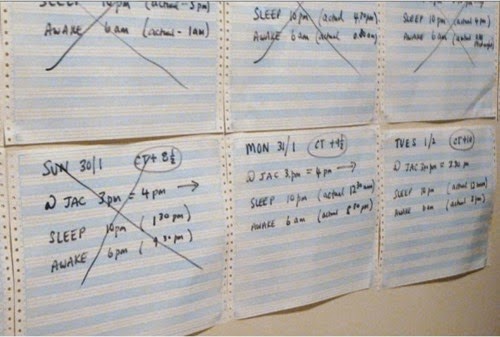 SLEEP 10pm (actual - 5pm
AWAKE 6am (actual - 1am)
SLEEP 10pm (actual
AWAKE 6am (actual
SLEEP 10pm (actual 4pm)
AWAKE 6am (actual
SUN 30/1 CT + 8½
JAC 3pm = 4pm →
SLEEP 10pm (1 30 pm)
AWAKE 6pm (9 30 pm)
MON 31/1 CT + 9½
JAC 3pm = 4pm →
SLEEP 10pm (actual
AWAKE 6am (actual 8 30 pm)
TUES 1/2 CT + 10
JAC 3pm =
SLEEP 10pm (actual
AWAKE 6am (actual